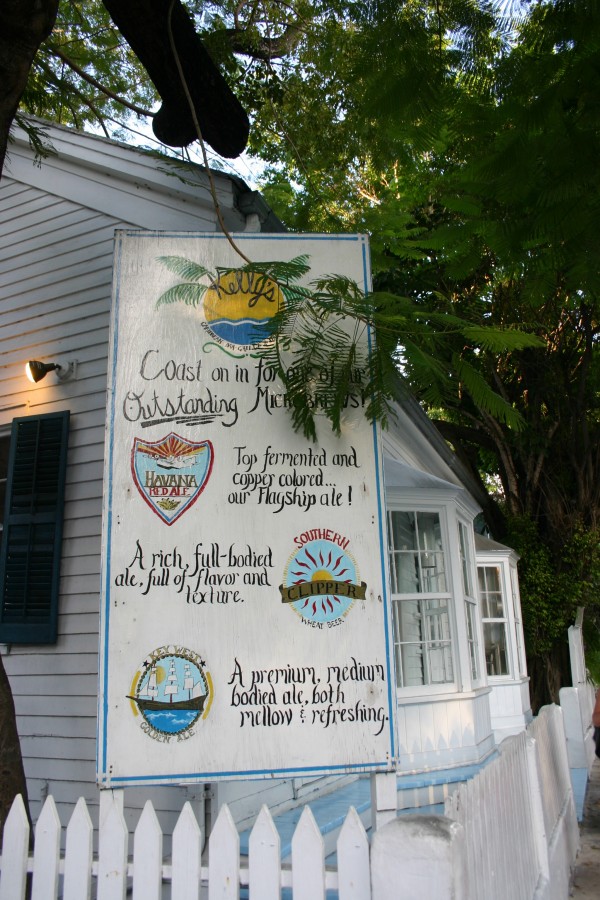 Kelly's
Coast on in for one of our
Outstanding Microbrews!
HAVANA
RED ALE
Top fermented and
copper colored...
our Flagship ale!
A rich, full-bodied
ale, full of flavor and
texture.
SOUTHERN
CLIPPER
WHEAT BEER
KEY WEST
GOLDEN ALE
A premium, medium
bodied ale, both
mellow & refreshing.